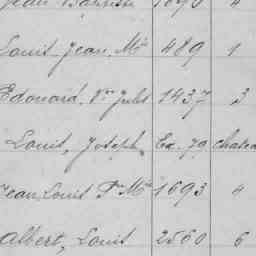 Jean Baptiste 1690 4
Louis Jean, Mie 489 1
Edouard, Vor Jules 1437 3
Louis, Joseph, Ex. 79 chatea
Jean, Louis Fs Mie 1693 4
Albert, Louis 2560 6